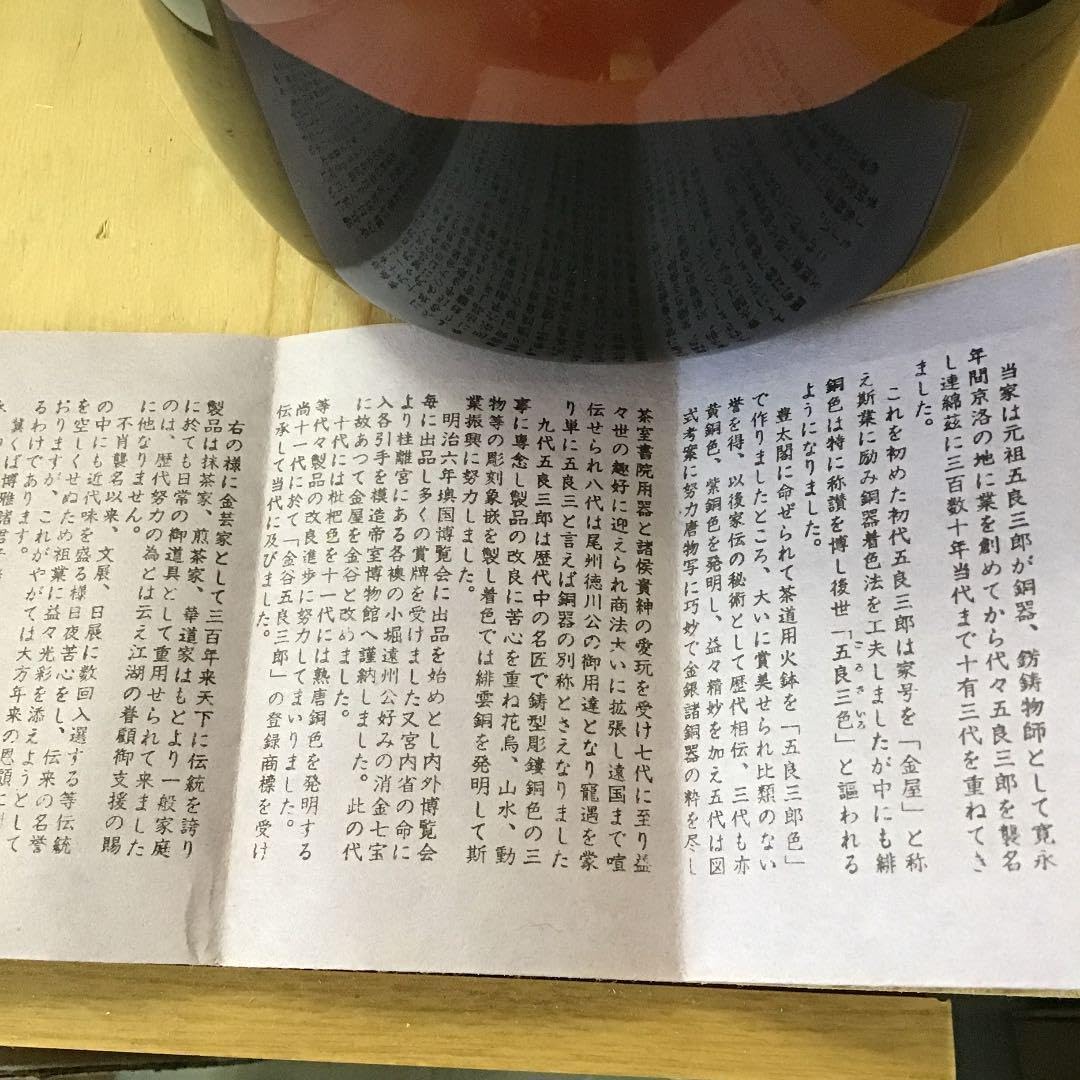 当家は元祖五良三郎が銅器、鋳物師として寛永
年間京洛の地に業を創めてから代々五良三郎を襲名
し連綿茲に三百数十年当代まで十有三代を重ねてき
ました。
これを初めた初代五良三郎は家号を「金屋」と称
え斯業に励み銅器着色法を工夫しましたが中にも緋
銅色は特に称讃を博し後世「五良三色」と謳われる
ごろさいろ
ようになりました。
豊太閤に命ぜられて茶道用火鉢を「五良三郎色」
で作りましたところ、大いに賞美せられ比類のない
誉を得、以後家伝の秘術として歴代相伝、三代も亦
黄銅色、紫銅色を発明し、益々精妙を加え五代は図
式考案に努力唐物写に巧妙で金銀諸銅器の粋を尽し
茶室書院用器と諸侯貴紳の愛玩を受け七代に至り益
々世の趣好に迎えられ商法大いに拡張し遠国まで喧
伝せられ八代は尾州徳川公の御用達となり寵遇を蒙
り単に五良三と言えば銅器の別称とさえなりました
九代五良三郎は歴代中の名匠で鋳型彫鏤銅色の三
事に専念し製品の改良に苦心を重ね花鳥、山水、動
物等の彫刻象嵌を製し着色では緋雲銅を発明して斯
業振興に努力しました。
明治六年墺国博覧会に出品を始めとし内外博覧会
毎に出品し多くの賞牌を受けました又宮内省の命に
より桂離宮にある各襖の小堀遠州公好みの消金七宝
入各引手を模造帝室博物館へ謹納しました。此の代
に故あつて金屋を金谷と改めました。
十代には枇杷色を十一代には熟唐銅色を発明する
等代々製品の改良進歩に努力してまいりました。
尚十一代に於て「金谷五良三郎」の登録商標を受け
伝承して当代に及びました。
右の様に金芸家として三百年来天下に伝統を誇り
製品は抹茶家、煎茶家、華道家はもとより一般家庭
に於ても日常の御道具として重用せられて来ました
のは、歴代努力の為とは云え江湖の眷顧御支援の賜
に他なりません。
不肖襲名以来、文展、日展に数回入選する等伝統
の中にも近代味を盛る様日夜苦心をし、伝来の名誉
を空しくせぬため祖業に益々光彩を添えようとして
おりますが、これがやがては大方年来の恩顧に
るわけであります。
冀くば博雅諸君子